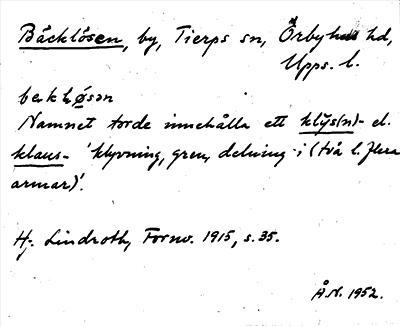 Bäcklösen, by, Tierps sn, Örbyhus hd,
Upps. l.
Namnet torde innehålla ett klȳs(n)- el.
klaus- 'klyvning, gren, delning i (två l. flera
armar)'.
Hj. Lindroth, Fornv. 1915, s. 35.
Å.N. 1952.